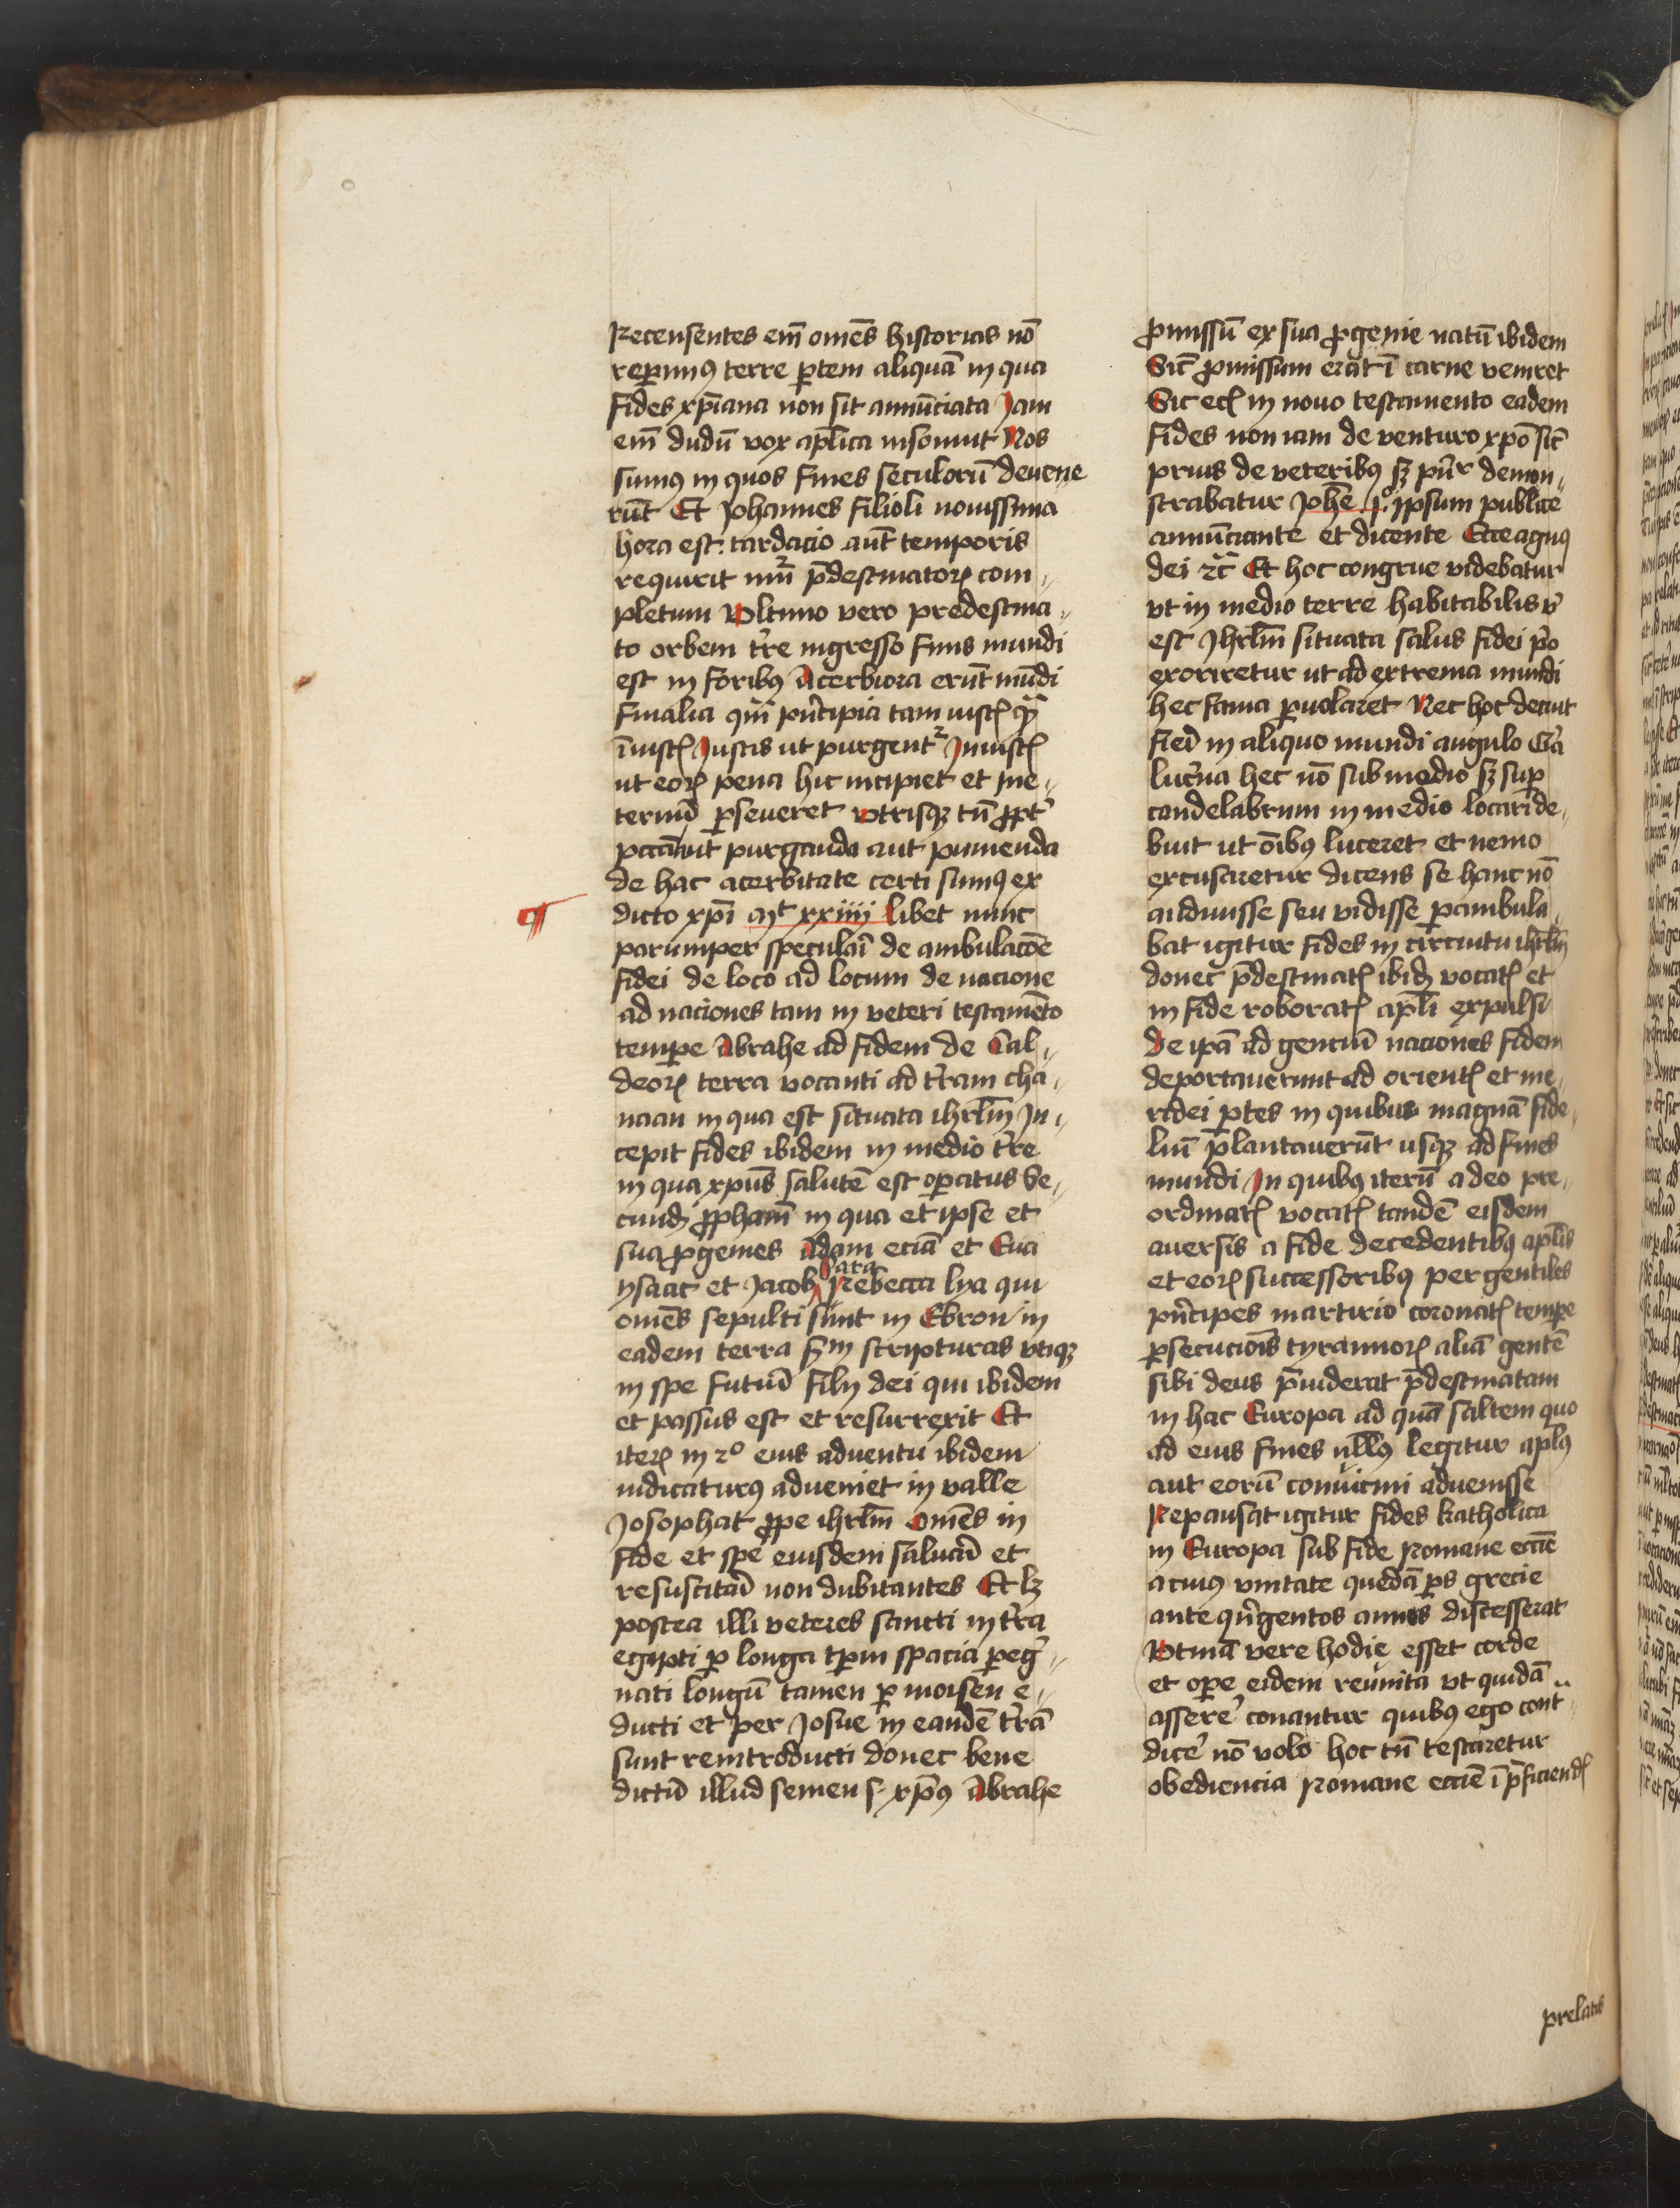 Recensentes em̄ om̄es historias nō
reperimꝰ terre ꝑtem aliquā in qua
fides xp̄iana non sit annūciata Jam
em̄ dudū vox ap̄lica insonuit Nos
sumꝰ in quos fines seculorū deuene
rūt Et Johannes filioli nouissima
hora est tardacio aūt temporis
requirit nūꝝ p̄destinatoꝝ com
pletum Vltimo vero predestina
to orbem t̄re ingresso finis mundi
est in foribꝰ Acerbiora erūt mūdi
finalia qm̄ pn̄cipia tam iustꝭ qꝫ
īiustꝭ Justis ut purgent᷑ Jniustꝭ
ut eoꝝ pena hic incipiet et ine
ternū ꝑseueret vtrisqꝫ tn̄ ꝓpt̄
pctā aut purganda aut punienda
de hac acerbitate certi sumꝰ ex
dicto xp̄i Mt xxiiii libet nunc
parumper speculari de ambulacōe
fidei de loco ad locum de nacione
ad naciones tam in veteri testamēto
tempe Abrahe ad fidem de Cal
deoꝝ terra vocanti ad t̄ram cha
naan in qua est situata ihrlm̄ Jn
cepit fides ibidem in medio t̄re
in qua xp̄us salutē est oꝑatus Se
cundꝫ ꝓphaꝫ in qua et ipse et
sua ꝓgenies Adam eciā et Eua
Sara
ysaac et Jacob Rebecca lya qui
om̄es sepulti sunt in Ebron in
eadem terra scdm scripturas vtiqꝫ
in spe futurū filij dei qui ibidem
et passus est et resurrexit Et
iteꝝ in 2o eius aduentu ibidem
iudicaturꝰ adueniet in valle
Josophat ꝓpe ihrlm̄ Om̄es in
fide et spe eiusdem saluari et
resuscitari non dubitantes Et lꝫ
postea illi veteres sancti in t̄ra
egipti ꝑ longa tp̄m spacia ꝑeg
nati longū tamen ꝑ moisen e
ducti et per Josue in eandē t̄rā
sunt reintroducti donec bene
dictū illud semen s. xp̄us Abrahe
ꝓmissū ex sua ꝓgenie natū ibidem
Sic ꝓmissum erat ī carne veniret
Sic ecꝫ in nouo testamento eadem
fides non iam de venturo xp̄o sic̄
prius de veteribꝰ sꝫ pn̄r demon
strabatur Johē 1o ipsum publice
annūciante et dicente Ecce agnꝰ
dei ⁊c̄ Et hoc congrue videbatur
vt in medio terre habitabilis v̄
est Jhrlm̄ situata salus fidei p̄o
exoriretur ut ad extrema mundi
hec fama ꝑuolaret Nec hoc decuit
fieri in aliquo mundi angulo Q̄a
luc̄na hec nō sub modio sꝫ suꝑ
candelabrum in medio locari de
buit ut oībꝰ luceret et nemo
excusaretur dicens se hanc nō
audiuisse seu vidisse ꝑambula
bat igitur fides in circuitu ihrlm̄
donec p̄destinatꝭ ibidꝫ vocatꝭ et
in fide roboratꝭ apl̄i expulsi
de ip̄a ad genciū naciones fidem
deportauerunt ad orientꝭ et me
ridei ꝑtes in quibus magnā fide
liū p̄lantauerūt usqꝫ ad fines
mundi Jn quibꝰ iterū a deo pre
ordinatꝭ vocatꝭ tandē eisdem
auersis a fide decedentibꝰ apl̄is
et eoꝝ successoribꝰ per gentiles
pn̄cipes martirio coronatꝭ tempe
ꝑsecucionis tyrannoꝝ aliā gentē
sibi deus p̄uiderat p̄destinatam
in hac Europa ad quā saltem quo
ad eius fines nullꝰ legitur apl̄ꝰ
aut eorū conuicini aduenisse
Repausat igitur fides katholica
in Europa sub fide romane ecc̄ie
a cuiꝰ vnitate quedā ꝑs grecie
ante qn̄gentos annos discesserat
Vtinā vere hodie esset corde
et oꝑe eidem reunita vt quidā
assere᷑ conantur quibꝰ ego cont̄
dice᷑ nō volo hoc tn̄ testaretur
obediencia romane ecc̄ie ī p̄ficiendꝭ
prelatis